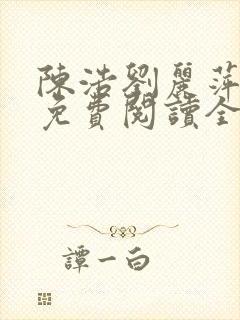 陳浩劉麗萍
免費閱讀全
譚一白